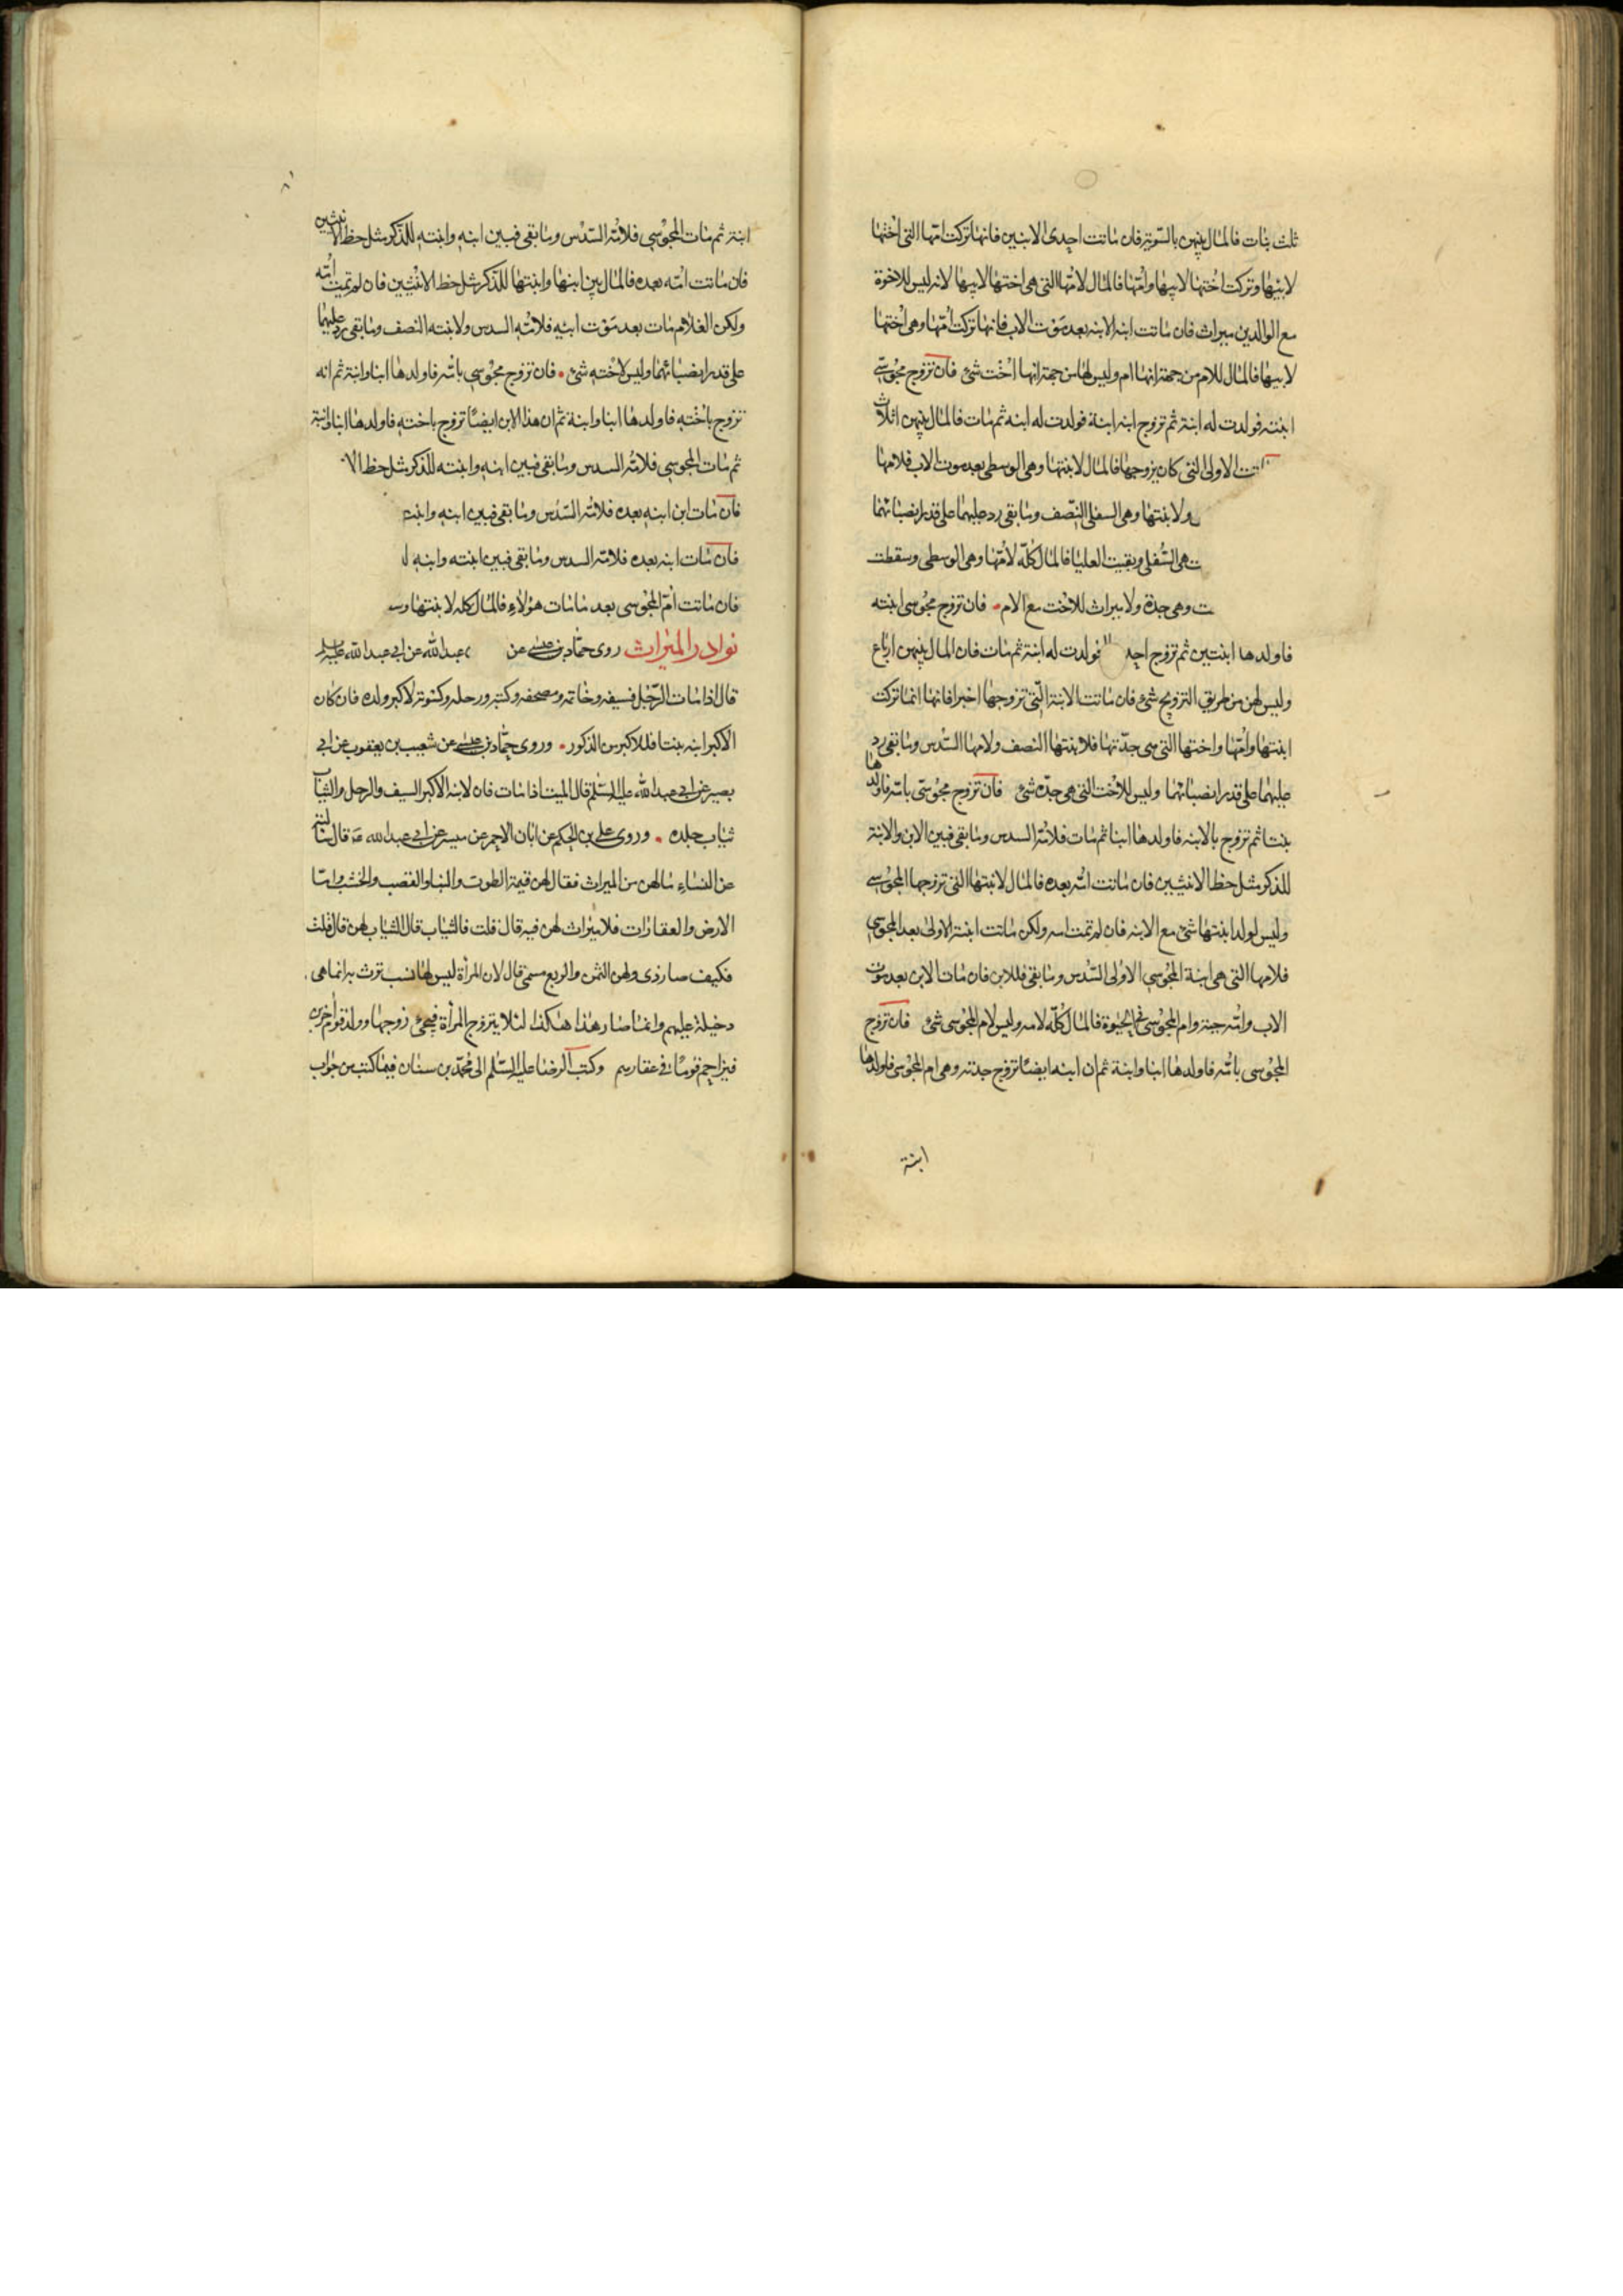 ثلث بنات فالمال بينهن بالسوية فان ماتت احدى الابنتين فانها تركت امها التى اختها
لابيها وتركت اختها لابيها وامها فالمال لامها التى هى اختها لابيها لانه ليس للاخوة
مع الوالدين ميراث فان ماتت ابنة الابنة بعد موت الاب فانها تركت امها وهى اختها
لابيها فالمال للام من جهة انها ام وليس لها من جهة انها اخت شئ فان تزوج مجوسى
ابنته فولدت له ابنة ثم تزوج ابنة ابنة فولدت له ابنة ثم مات فالمال بينهن اثلاث
تت الاولى التى كان تزوجها فالمال لابنتها وهى الوسطى بعد موت الاب فلامها
ولابنتها وهى السفلى النصف وما بقى رد عليهما على قدر انصبائهما
هى السفلى وبقيت العليا فالمال كله لامها وهى الوسطى وسقطت
ت وهى جدة ولا ميراث للاخت مع الام فان تزوج مجوسى ابنته
فاولدها ابنتين ثم تزوج احد فولدت له ابنة ثم مات فان المال بينهن ارباع
وليس لهن من طريق التزويج شئ فان ماتت الابنة التى تزوجها اخيرا فانها انما تركت
ابنتها وامها واختها التى هى جدتها فلابنتها النصف ولامها السدس وما بقى رد
عليهما على قدر انصبائهما وليس للاخت التى هى جدة شئ فان تزوج مجوسى بامه فاولدها
بنتا ثم تزوج بالابنة فاولدها ابنا ثم مات فلامه السدس وما بقى فبين الابن والابنة
للذكر مثل حظ الانثيين فان ماتت امه بعده فالمال لابنتها التى تزوجها المجوسى
وليس لولد ابنتها شئ مع الابنة فان لم تمت امه ولكن ماتت ابنته الاولى بعد المجوسى
فلامها التى هى ابنة المجوسى الاولى السدس وما بقى فللابن فان مات الابن بعد موت
الاب وامه حية وام المجوسى فى الحيوة فالمال كله لامه وليس لام المجوسى شئ فان تزوج
المجوسى بامه فاولدها ابنا وابنة ثم ان ابنه ايضا تزوج جدته وهى ام المجوسى فاولدها
ابنة
ابنة ثم مات المجوسى فلامه السدس وما بقى فبين ابنه وابنته للذكر مثل حظ الانثيين
فان ماتت امه بعده فالمال بين ابنها وابنتها للذكر مثل حظ الانثيين فان لم تمت امه
ولكن الغلام مات بعد موت ابيه فلامه السدس ولابنته النصف وما بقى رد عليهما
على قدر انصبائهما وليس لاخته شئ فان تزوج مجوسى بامه فاولدها ابنا وابنة ثم انه
تزوج باخته فاولدها ابنا وابنة ثم ان هذا الابن ايضا تزوج باخته فاولدها ابنا وابنة
ثم مات المجوسى فلامه السدس وما بقى فبين ابنه وابنته للذكر مثل حظ الا
فان مات ابن ابنه بعده فلامه السدس وما بقى فبين ابنه وابنته
فان مات ابنه بعده فلامه السدس وما بقى فبين ابنته وابنه ل
فان ماتت ام المجوسى بعد ما مات هؤلاء فالمال كله لابنتها وسـ
نوادر الميراث روى حماد بن عيسى عن عبد الله عن ابى عبد الله عليه السلم
قال اذا مات الرجل فسيفه وخاتمه ومصحفه وكتبه ورحله وكسوته لاكبر ولده فان كان
الاكبر ابنة بنتا فللاكبر من الذكور وروى حماد بن عيسى عن شعيب بن يعقوب عن ابى
بصير عن ابى عبد الله عليه السلم قال الميت اذا مات فان لابنه الاكبر السيف والرحل والثياب
ثياب جلده وروى على بن الحكم عن ابان الاحمر عن ميسر عن ابى عبد الله ع قال سالته
عن النساء ما لهن من الميراث فقال لهن قيمة الطوب والبنا والقصب والخشب واما
الارض والعقارات فلا ميراث لهن فيه قال قلت فالثياب قال الثياب لهن قال قلت
فكيف صار ذى ولهن الثمن والربع مسمى قال لان المراة ليس لها نسب ترث به انما هى
دخيلة عليهم وانما صار هذا هكذا لئلا يتزوج المراة فيجئ زوجها وولد قوم اخرين
فيزاحم قوما فى عقارهم وكتب الرضا عليه السلم الى محمد بن سنان فيما كتب من جواب